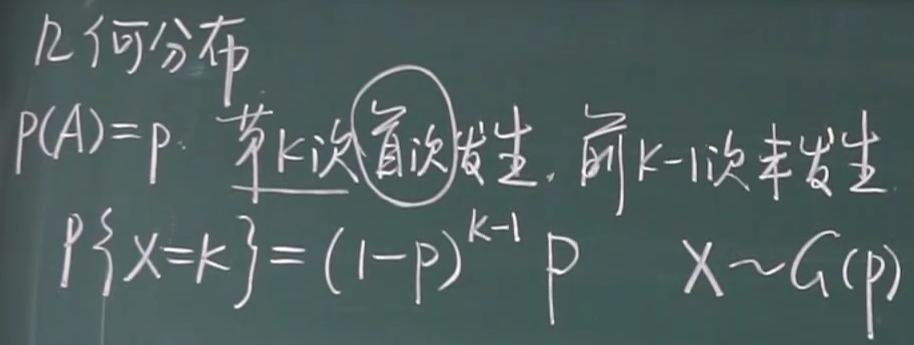 几何分布
P(A)=p. 第k次首次发生, 前k-1次未发生
P{X=k}=(1-p)^{k-1} p X~G(p)